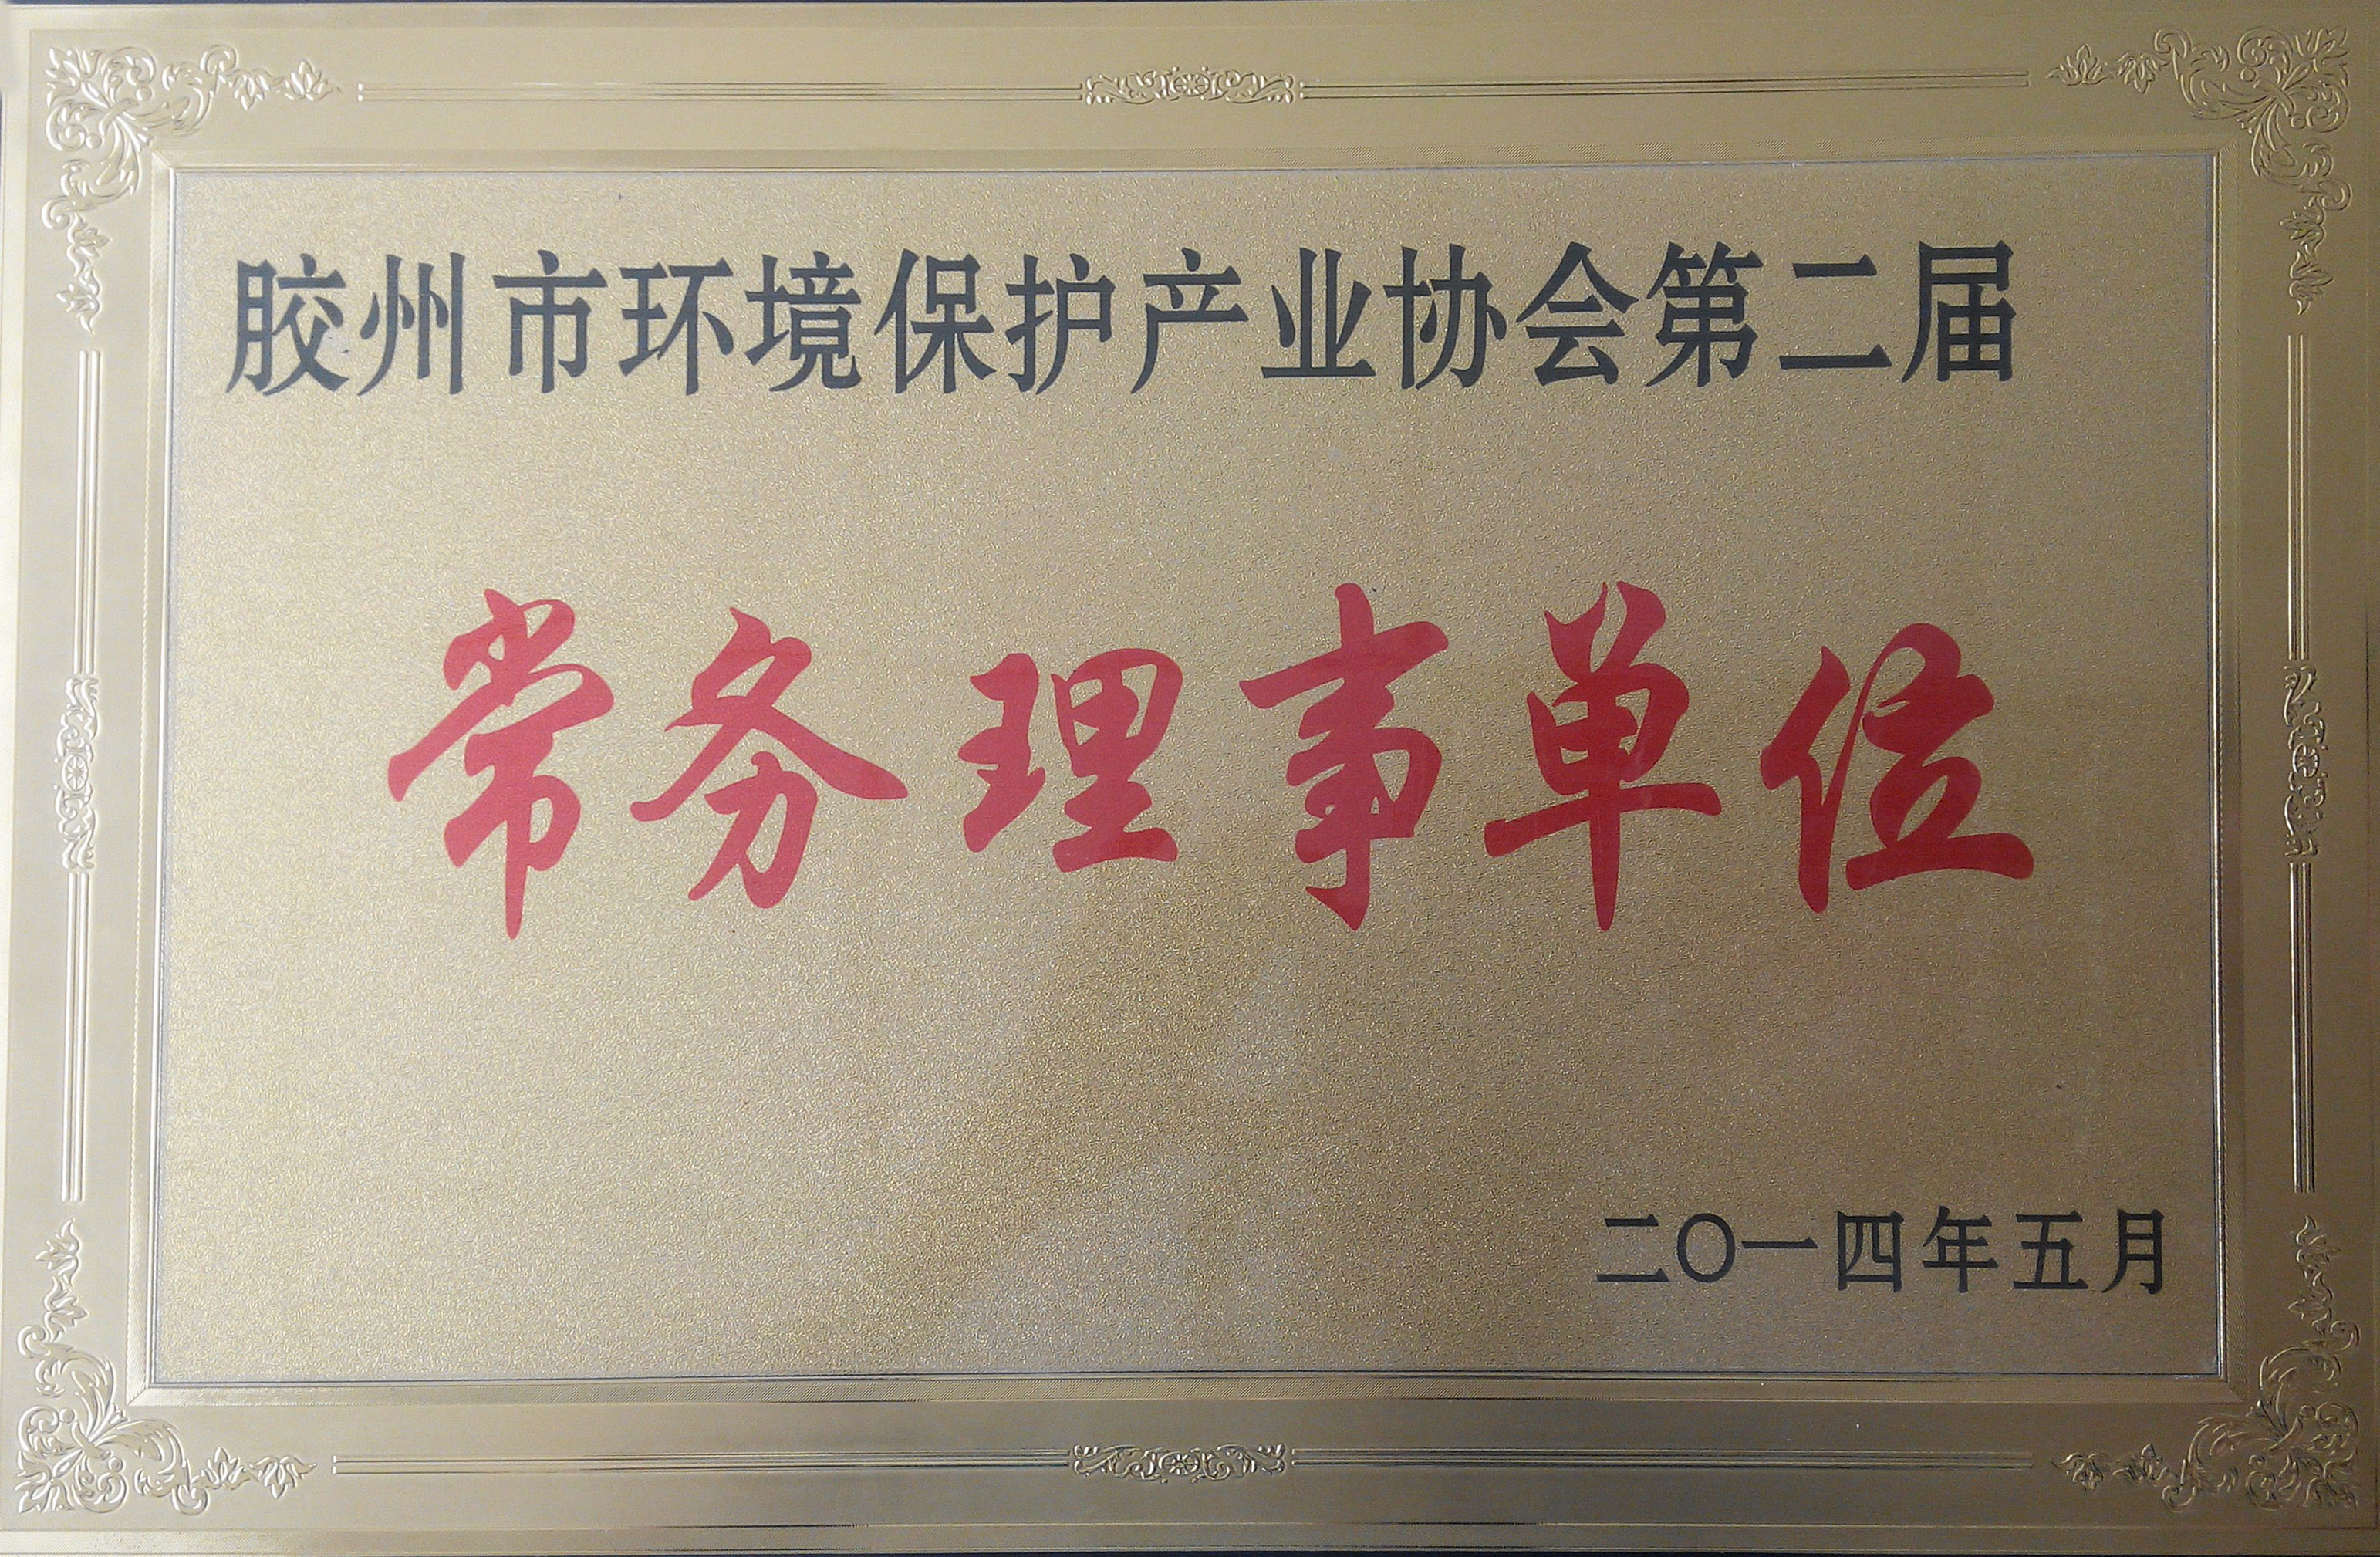 胶州市环境保护产业协会第二届
常务理事单位
二〇一四年五月